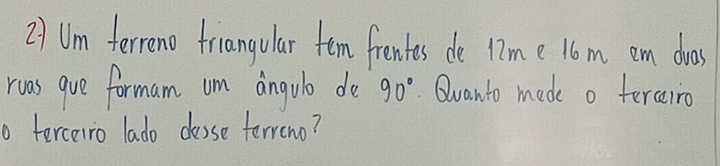 2) Um terreno triangular tem frentes de 12m e 16m em duas
ruas que formam um ângulo de 90°. Quanto mede o terceiro
o terceiro lado desse terreno?